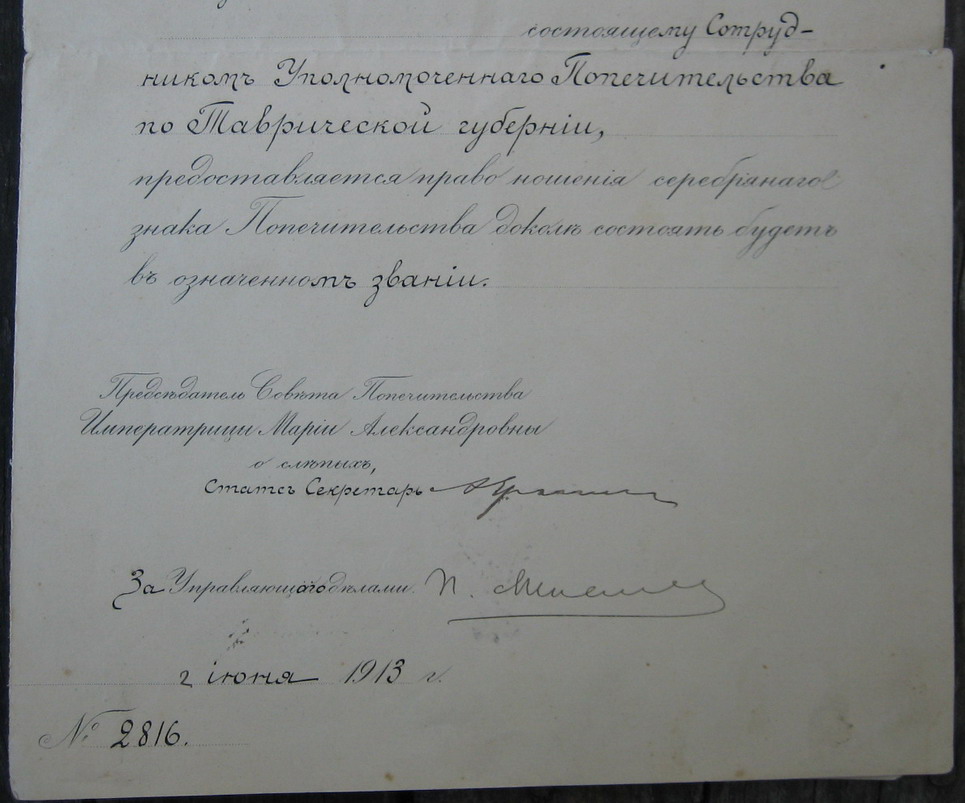 состоящему Сотруд-
никомъ Уполномоченнаго Попечительства
по Таврической губерніи,
предоставляется право ношенія серебрянаго
знака Попечительства доколѣ состоять будетъ
въ означенномъ званіи.
Предсѣдатель Совѣта Попечительства
Императрицы Маріи Александровны
о слѣпыхъ,
Статсъ Секретарь
За Управляющаго дѣлами П.
2 іюня 1913 г.
№ 2816.